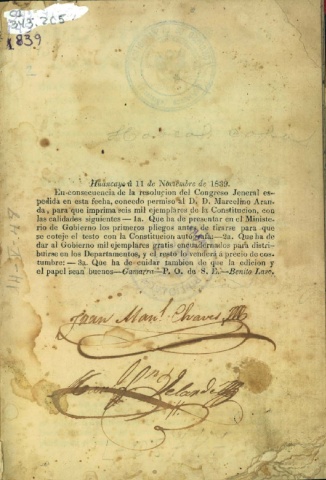 CI
343.2C5
1839
Huancayo á 11 de Noviembre de 1839.
En consecuencia de la resolucion del Congreso Jeneral es-
pedida en esta fecha, concedo permiso al D. D. Marcelino Aran-
da, para que imprima seis mil ejemplares de la Constitucion, con
las calidades siguientes—1a. Que ha de presentar en el Ministe-
rio de Gobierno los primeros pliegos antes de tirarse para que
se coteje el testo con la Constitucion autógrafa:—2a. Que ha de
dar al Gobierno mil ejemplares gratis encuadernados para distri-
buirse en los Departamentos, y el resto lo venderá á precio de cos-
tumbre:—3a. Que ha de cuidar tambien de que la edicion y
el papel sean buenos—Gamarra—P. O. de S. E.—Benito Laso.
Juan Manl. Chaves